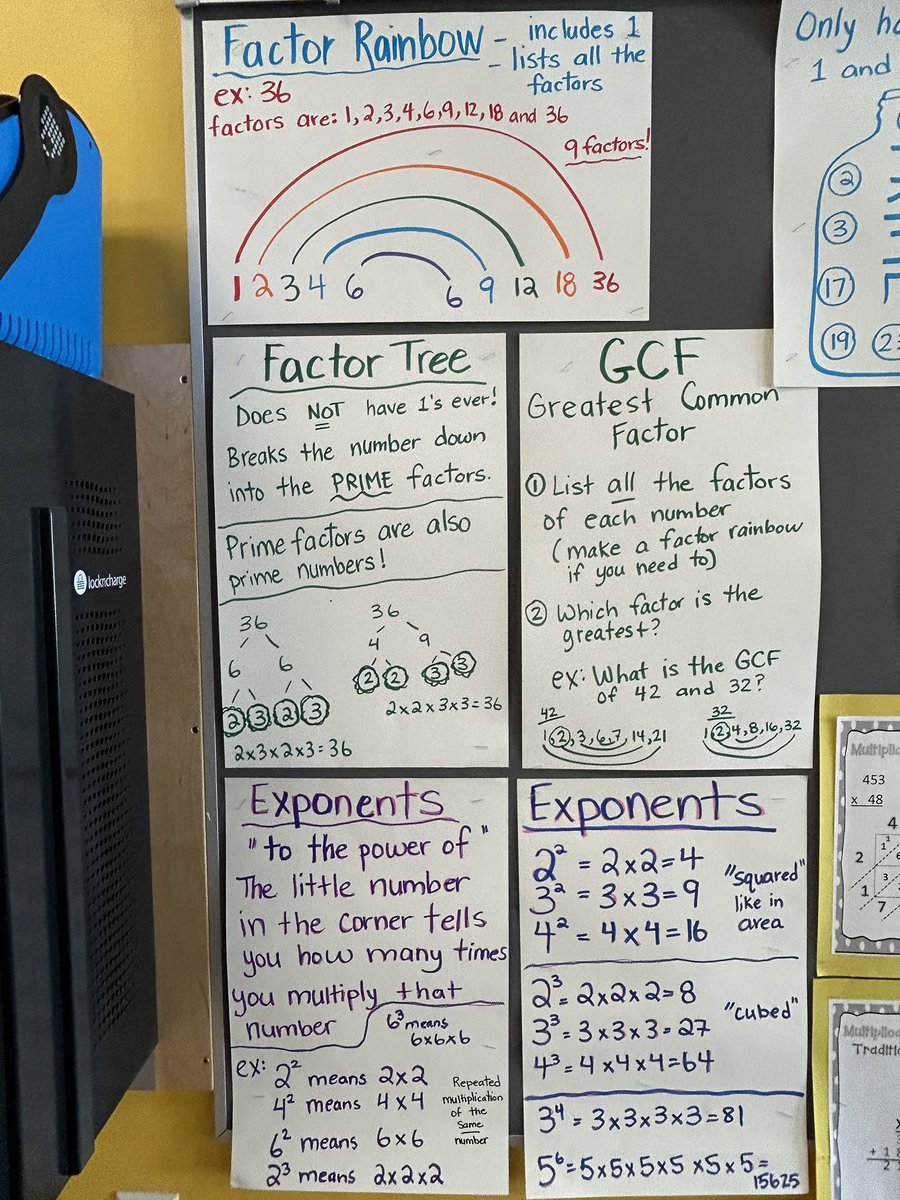 Factor Rainbow - includes 1
- lists all the
factors
ex: 36
factors are: 1, 2, 3, 4, 6, 9, 12, 18 and 36
9 factors!
1 2 3 4 6 6 9 12 18 36
Only
1 and
2
3
17
19
Factor Tree
Does NOT have 1's ever!
Breaks the number down
into the PRIME factors.
Prime factors are also
prime numbers!
36
6 6
2 3 2 3
2x3x2x3=36
36
4 9
2 2 3 3
2x2x3x3=36
GCF
Greatest Common
Factor
1 List all the factors
of each number
(make a factor rainbow
if you need to)
2 Which factor is the
greatest?
ex: What is the GCF
of 42 and 32?
42
1, 2, 3, 6, 7, 14, 21
32
1, 2, 4, 8, 16, 32
lockncharge
Exponents
"to the power of"
The little number
in the corner tells
you how many times
you multiply that
number
6³ means
6x6x6
ex: 2² means 2x2
4² means 4x4
6² means 6x6
2³ means 2x2x2
Repeated
multiplication
of the
same
number
Exponents
2² = 2x2=4
3² = 3x3=9
4² = 4x4=16
"squared"
like in
area
2³ = 2x2x2=8
3³ = 3x3x3=27
4³ = 4x4x4=64
"cubed"
3⁴ = 3x3x3x3=81
5⁶ = 5x5x5x5x5x5=
15625
453
x 48
4
2
1
7
Traditi